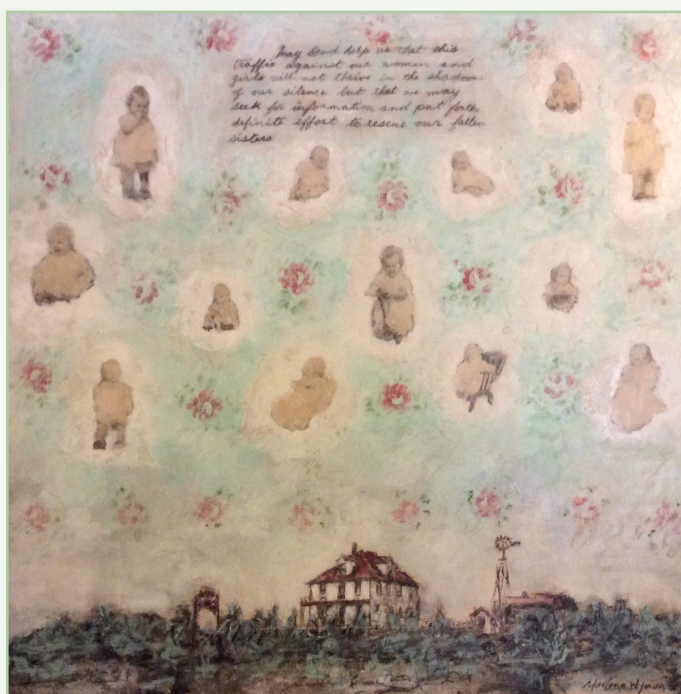 May God help us that this
traffic against our women and
girls will not thrive in the shadows
of our silence but that we may
seek for information and put forth
definite effort to rescue our fallen
sisters
Marlene Wyman